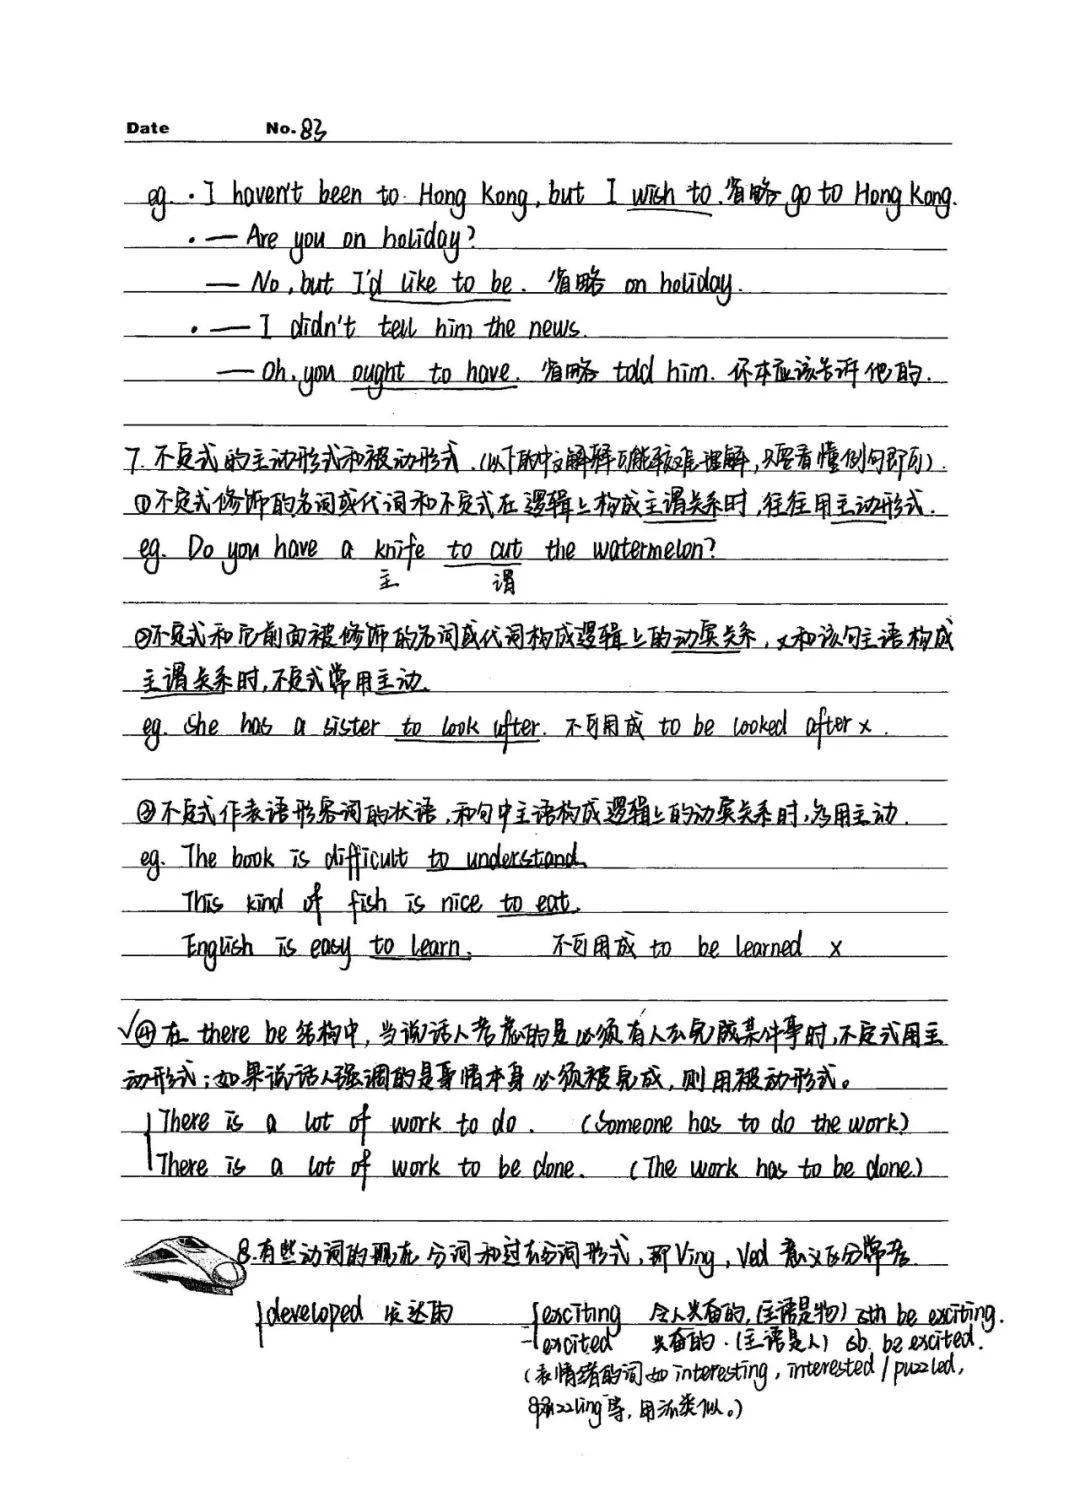 Date No. 83
eg. · I haven't been to Hong Kong, but I wish to. 省略 go to Hong Kong.
· — Are you on holiday?
— No, but I'd like to be. 省略 on holiday.
· — I didn't tell him the news.
— Oh, you ought to have. 省略 told him. 你本应该告诉他的.
7. 不定式的主动形式和被动形式. (以下的中文解释可能较难理解, 只要看懂例句即可).
①不定式修饰的名词或代词和不定式在逻辑上构成主谓关系时, 往往用主动形式.
eg. Do you have a knife to cut the watermelon?
主 谓
②不定式和它前面被修饰的名词或代词构成逻辑上的动宾关系, 又和该句主语构成
主谓关系时, 不定式常用主动.
eg. She has a sister to look after. 不可用成 to be looked after x.
③不定式作表语形容词的状语, 和句中主语构成逻辑上的动宾关系时, 多用主动.
eg. The book is difficult to understand.
This kind of fish is nice to eat.
English is easy to learn. 不可用成 to be learned x
√④在 there be 结构中, 当说话人考虑的是必须有人去完成某件事时, 不定式用主
动形式; 如果说话人强调的是事情本身必须被完成, 则用被动形式。
There is a lot of work to do. (Someone has to do the work)
There is a lot of work to be done. (The work has to be done.)
8. 有些动词的现在分词和过去分词形式, 即Ving, Ved 意义区分常考.
developed 发达的 exciting 令人兴奋的, (主语是物) sth be exciting.
excited 兴奋的. (主语是人) sb. be excited.
(表情绪的词如 interesting, interested / puzzled,
puzzling等, 用法类似。)